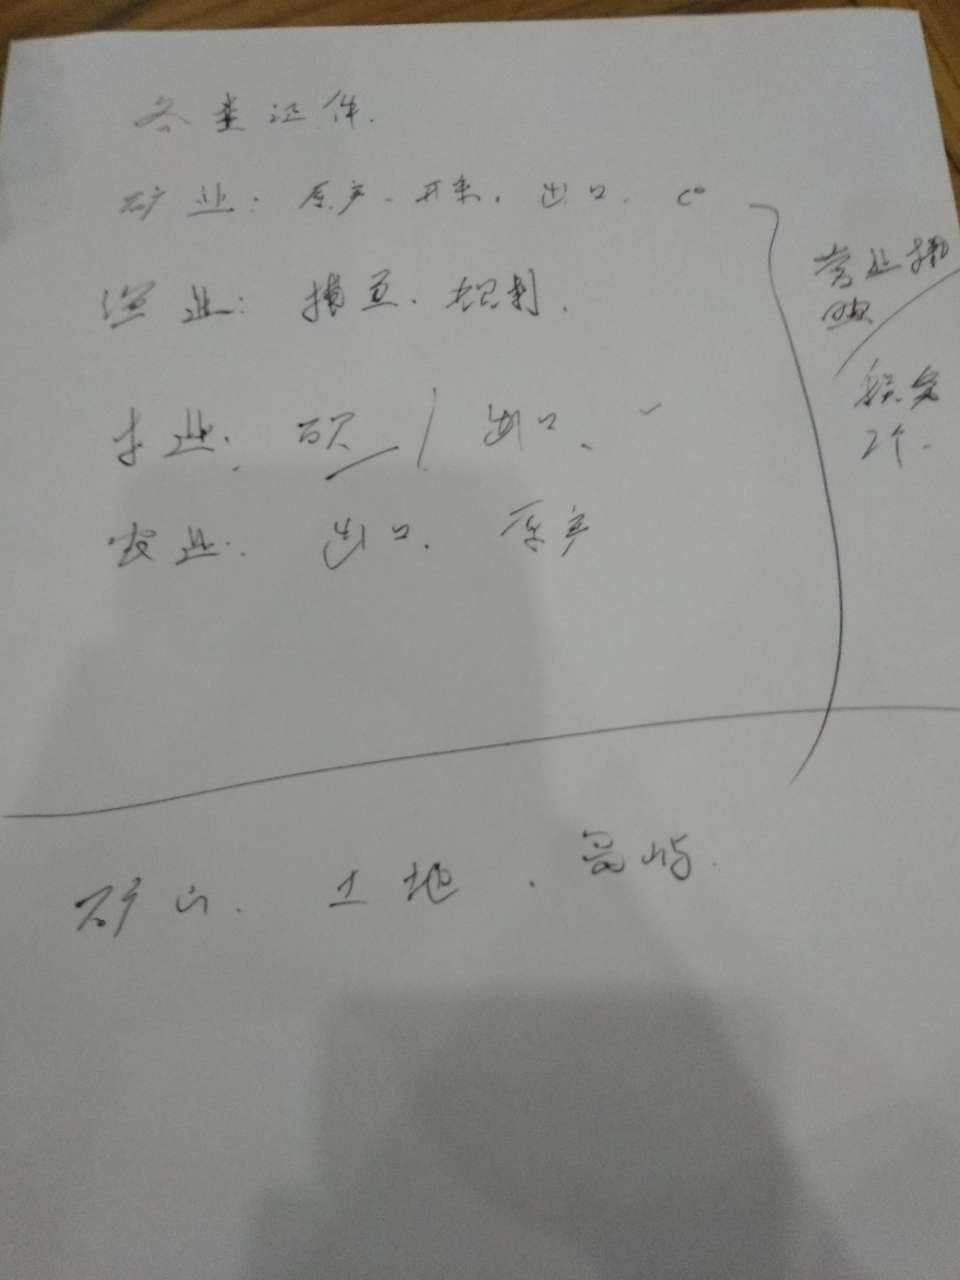 各类证件.
矿业: 原产. 开采. 出口. co
渔业: 捕鱼. 规制.
木业: 砍 / 出口.
农业: 出口. 原产
营业执照
税务
2个.
矿山. 土地. 岛屿.